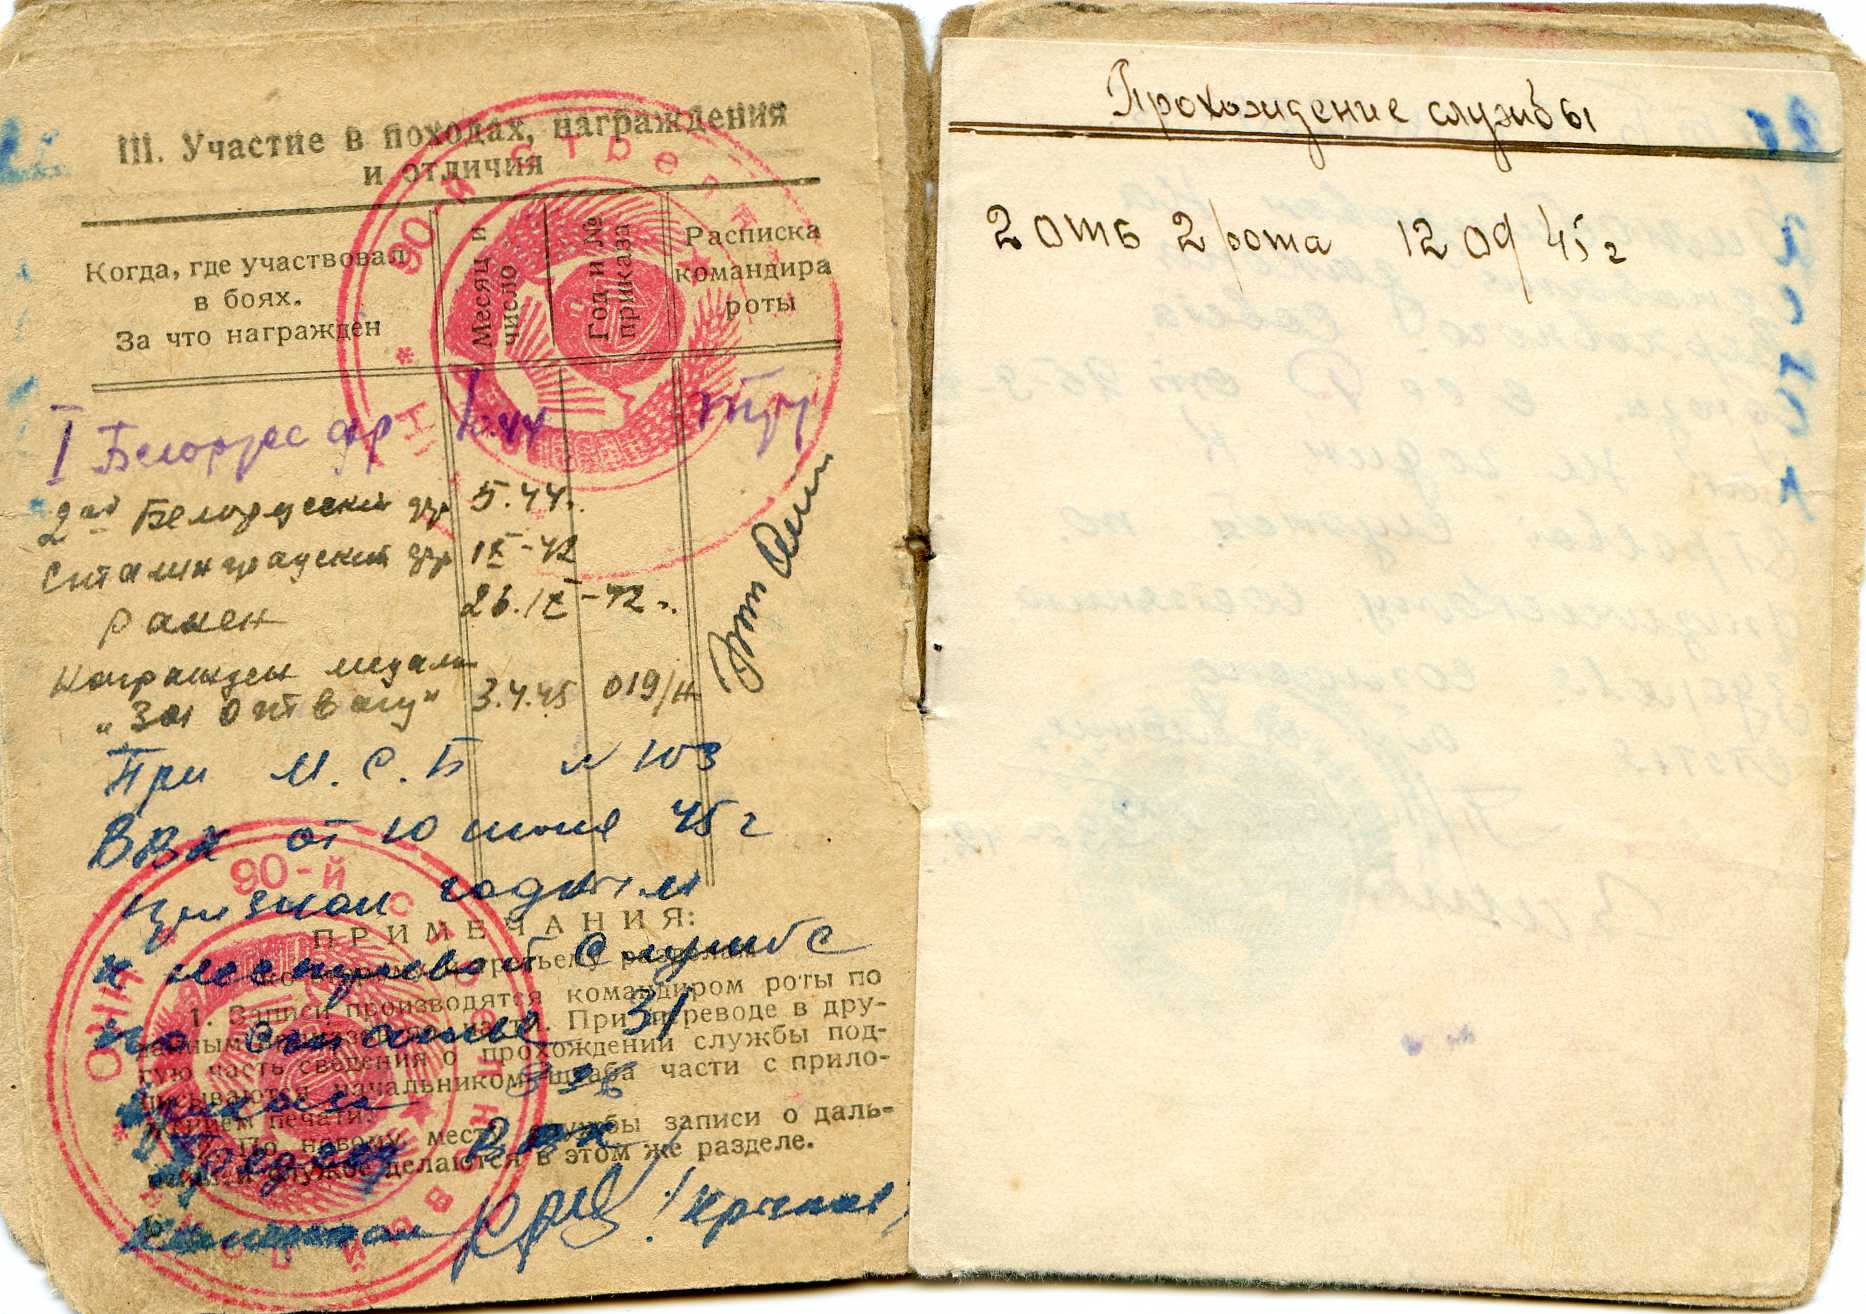 III. Участие в походах, награждения
и отличия
Когда, где участвовал
в боях.
За что награжден
Месяц и
число
Год и №
приказа
Расписка
командира
роты
I Белорус фр 44
2ой Белорусский фр 5.44г.
Сталинградский фр IX-42
ранен 26.IX-42г.
Награжден медаль
„За отвагу" 3.4.45 019/н
При М.С.Б №103
ВВК от 10 июня 45 г
признан годным
к нестроевой службе
по статье 31
приказ 336
Председ ВВК
Капитан
ПРИМЕЧАНИЯ:
третьему разделам
1. Записи производятся командиром роты по
данным штаба части. При переводе в дру-
гую часть сведения о прохождении службы под-
писываются начальником штаба части с прило-
жением печати.
2. По новому месту службы записи о даль-
нейшей службе делаются в этом же разделе.
90-й стрелк
90-й
Прохождение службы
2 отб 2 рота 12 09/45 г